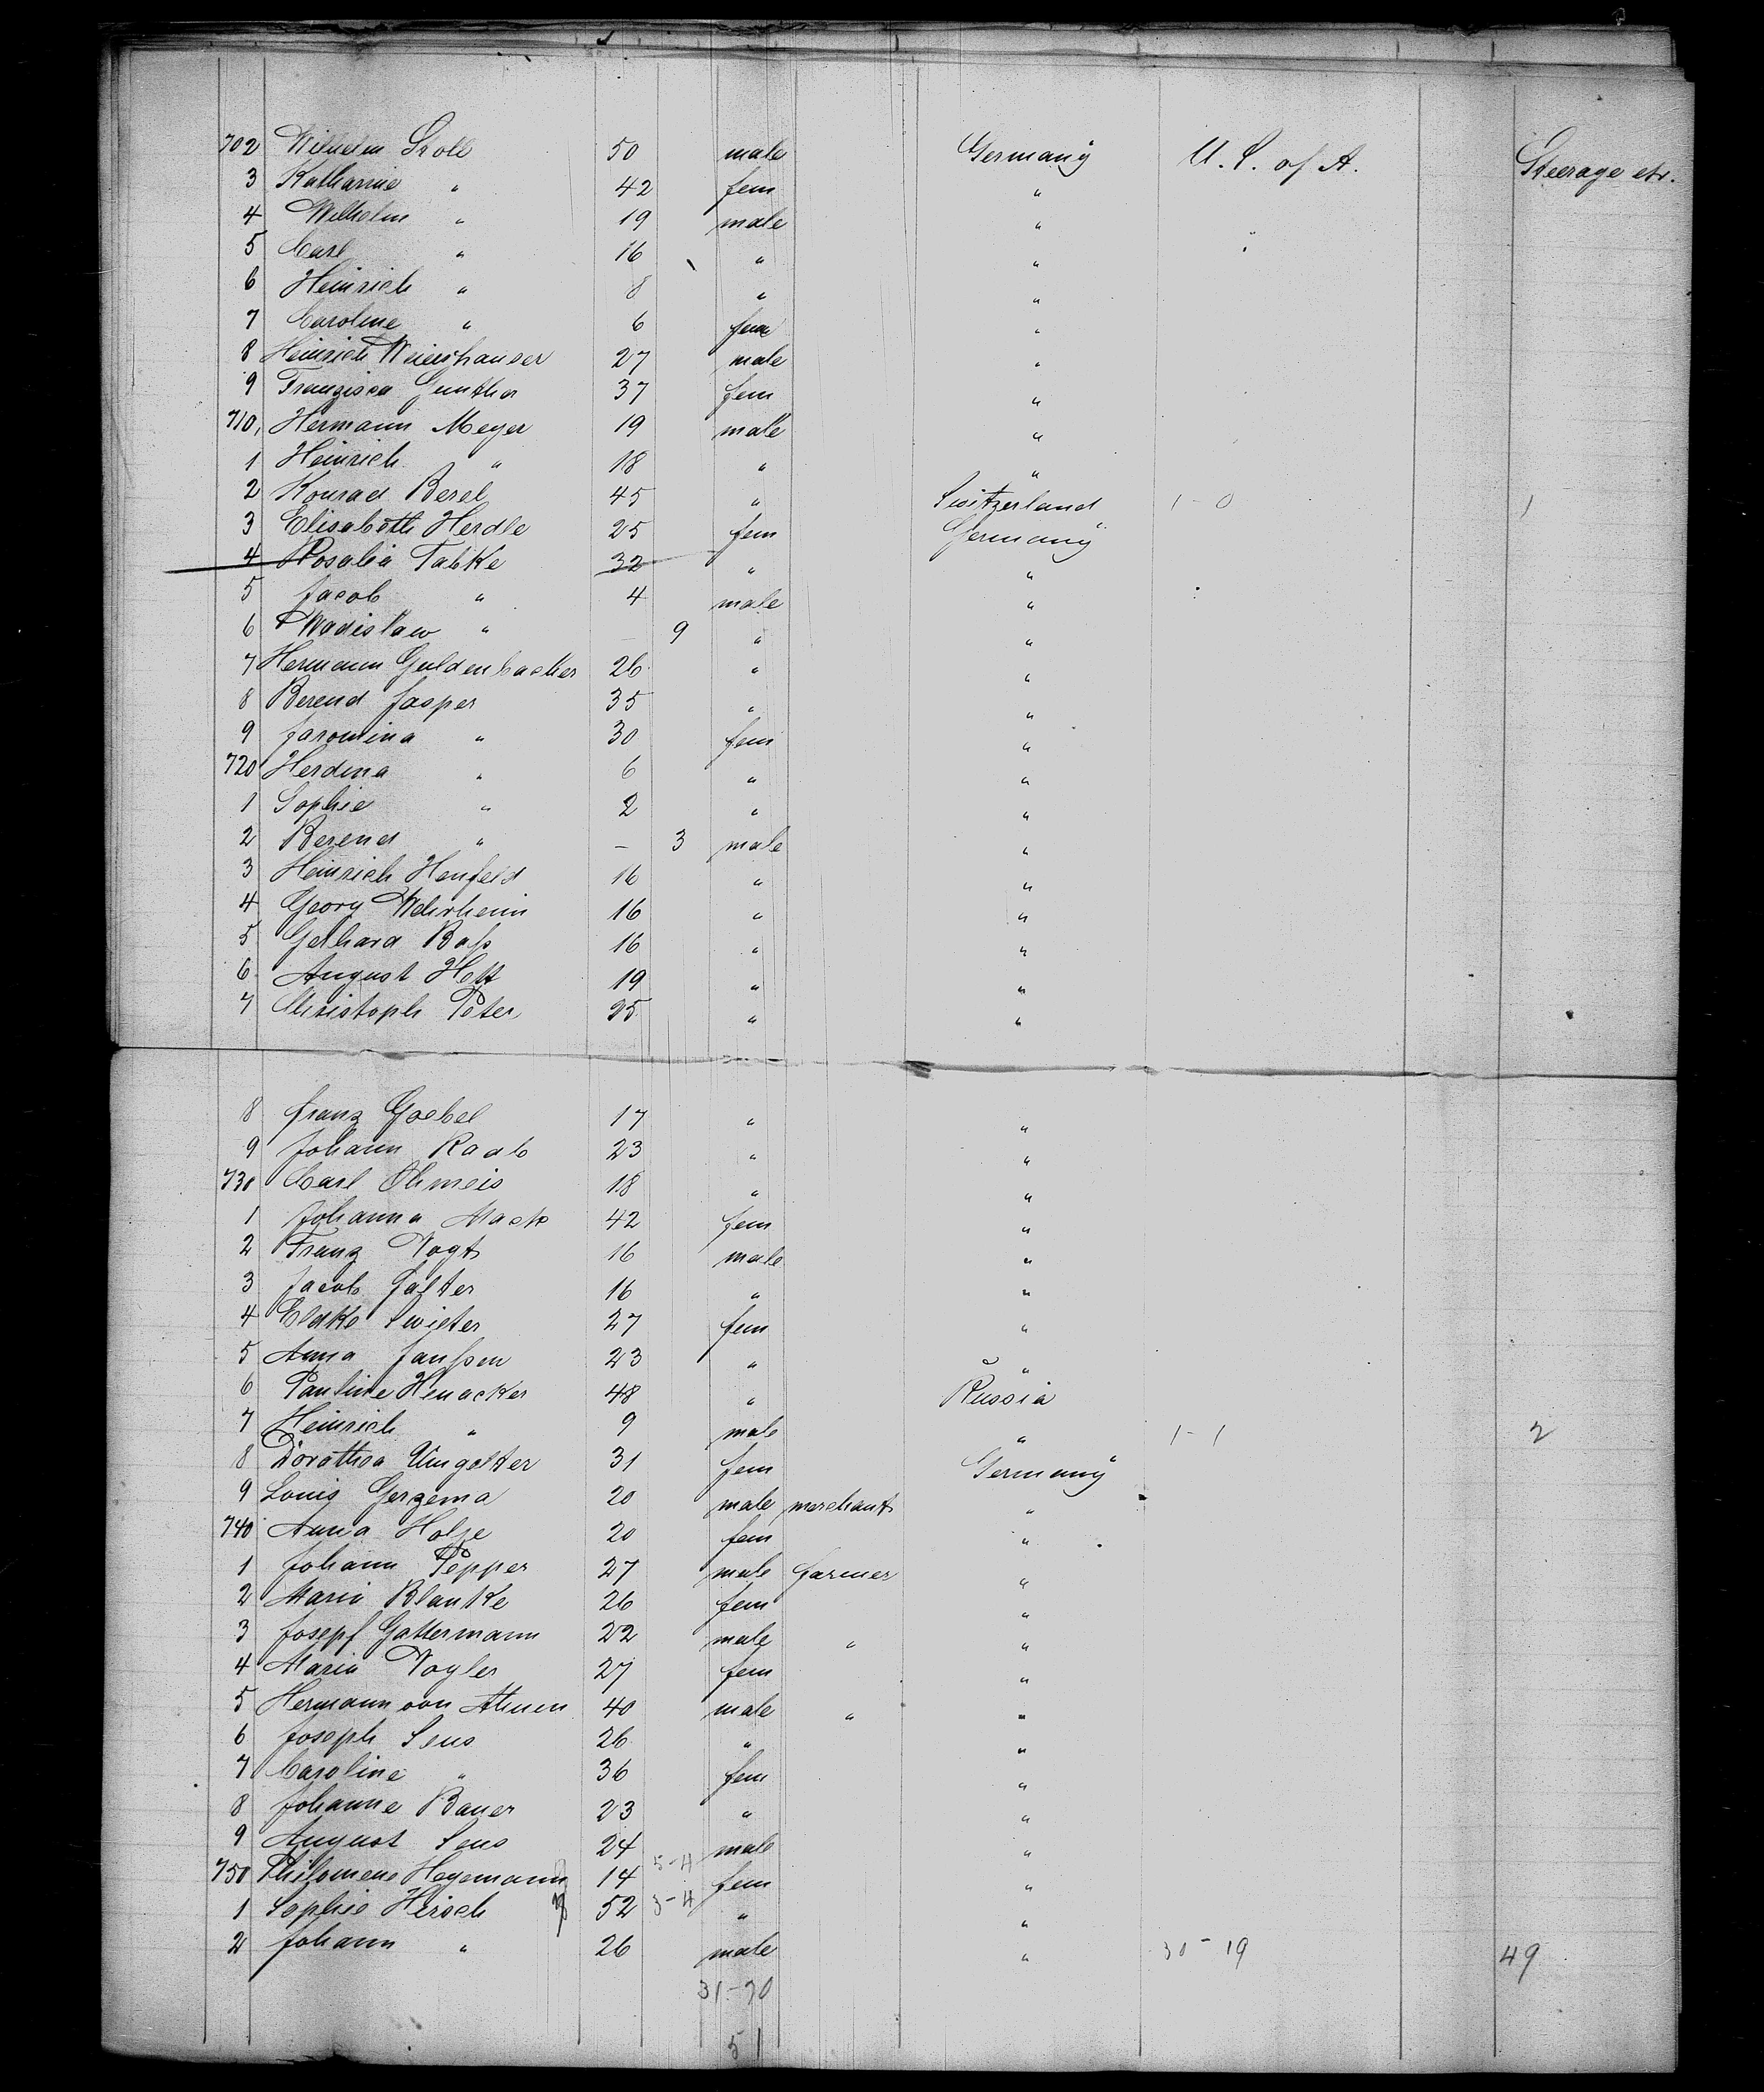 702 Wilhelm Stoll 50 male Germany U. S. of A. Steerage etc.
3 Katharine " 42 fem "
4 Wilhelm " 19 male "
5 Carl " 16 " " "
6 Heinrich " 8 " "
7 Caroline " 6 fem "
8 Heinrich Weiershauser 27 male "
9 Franzisca Gunther 37 fem "
710, Hermann Meyer 19 male "
1 Heinrich " 18 " "
2 Konrad Berel 45 " Switzerland 1-0 1
3 Elisabeth Herdle 25 fem Germany
4 Rosalia Tabke 32 " "
5 Jacob " 4 male "
6 Wadislaw " - 9 " "
7 Hermann Guldenbacher 26 " "
8 Berend Jasper 35 " "
9 Jaromina " 30 fem "
720 Herdina " 6 " "
1 Sophie " 2 " "
2 Berend " - 3 male "
3 Heinrich Henfeld 16 " "
4 Georg Wehrheim 16 " "
5 Gerhard Baß 16 " "
6 August Hott 19 " "
7 Christoph Peter 25 " "
8 Franz Goebel 17 " "
9 Johann Raab 23 " "
730 Carl Ohmeis 18 " "
1 Johanna Mack 42 fem "
2 Franz Vogt 16 male "
3 Jacob Falter 16 " "
4 Eldke Swieter 27 fem "
5 Anna Janßen 23 " "
6 Pauline Henacker 48 " Russia
7 Heinrich " 9 male " 1-1 2
8 Dorathea Umgelter 31 fem Germany
9 Louis Gerzema 20 male merchant "
740 Anna Holje 20 fem "
1 Johann Pepper 27 male farmer "
2 Maria Blanke 26 fem "
3 Josepf Gattermann 22 male " "
4 Maria Vogler 27 fem "
5 Hermann von Ahnen 40 male " "
6 Joseph Sens 26 " "
7 Caroline " 36 fem "
8 Johanne Bauer 23 " "
9 August Sens 24 male "
750 Philomene Hegemann 14 5-4 fem "
1 Sophie Hirsch 52 3-4 " "
2 Johann " 26 male " 30-19 49
31-20
51